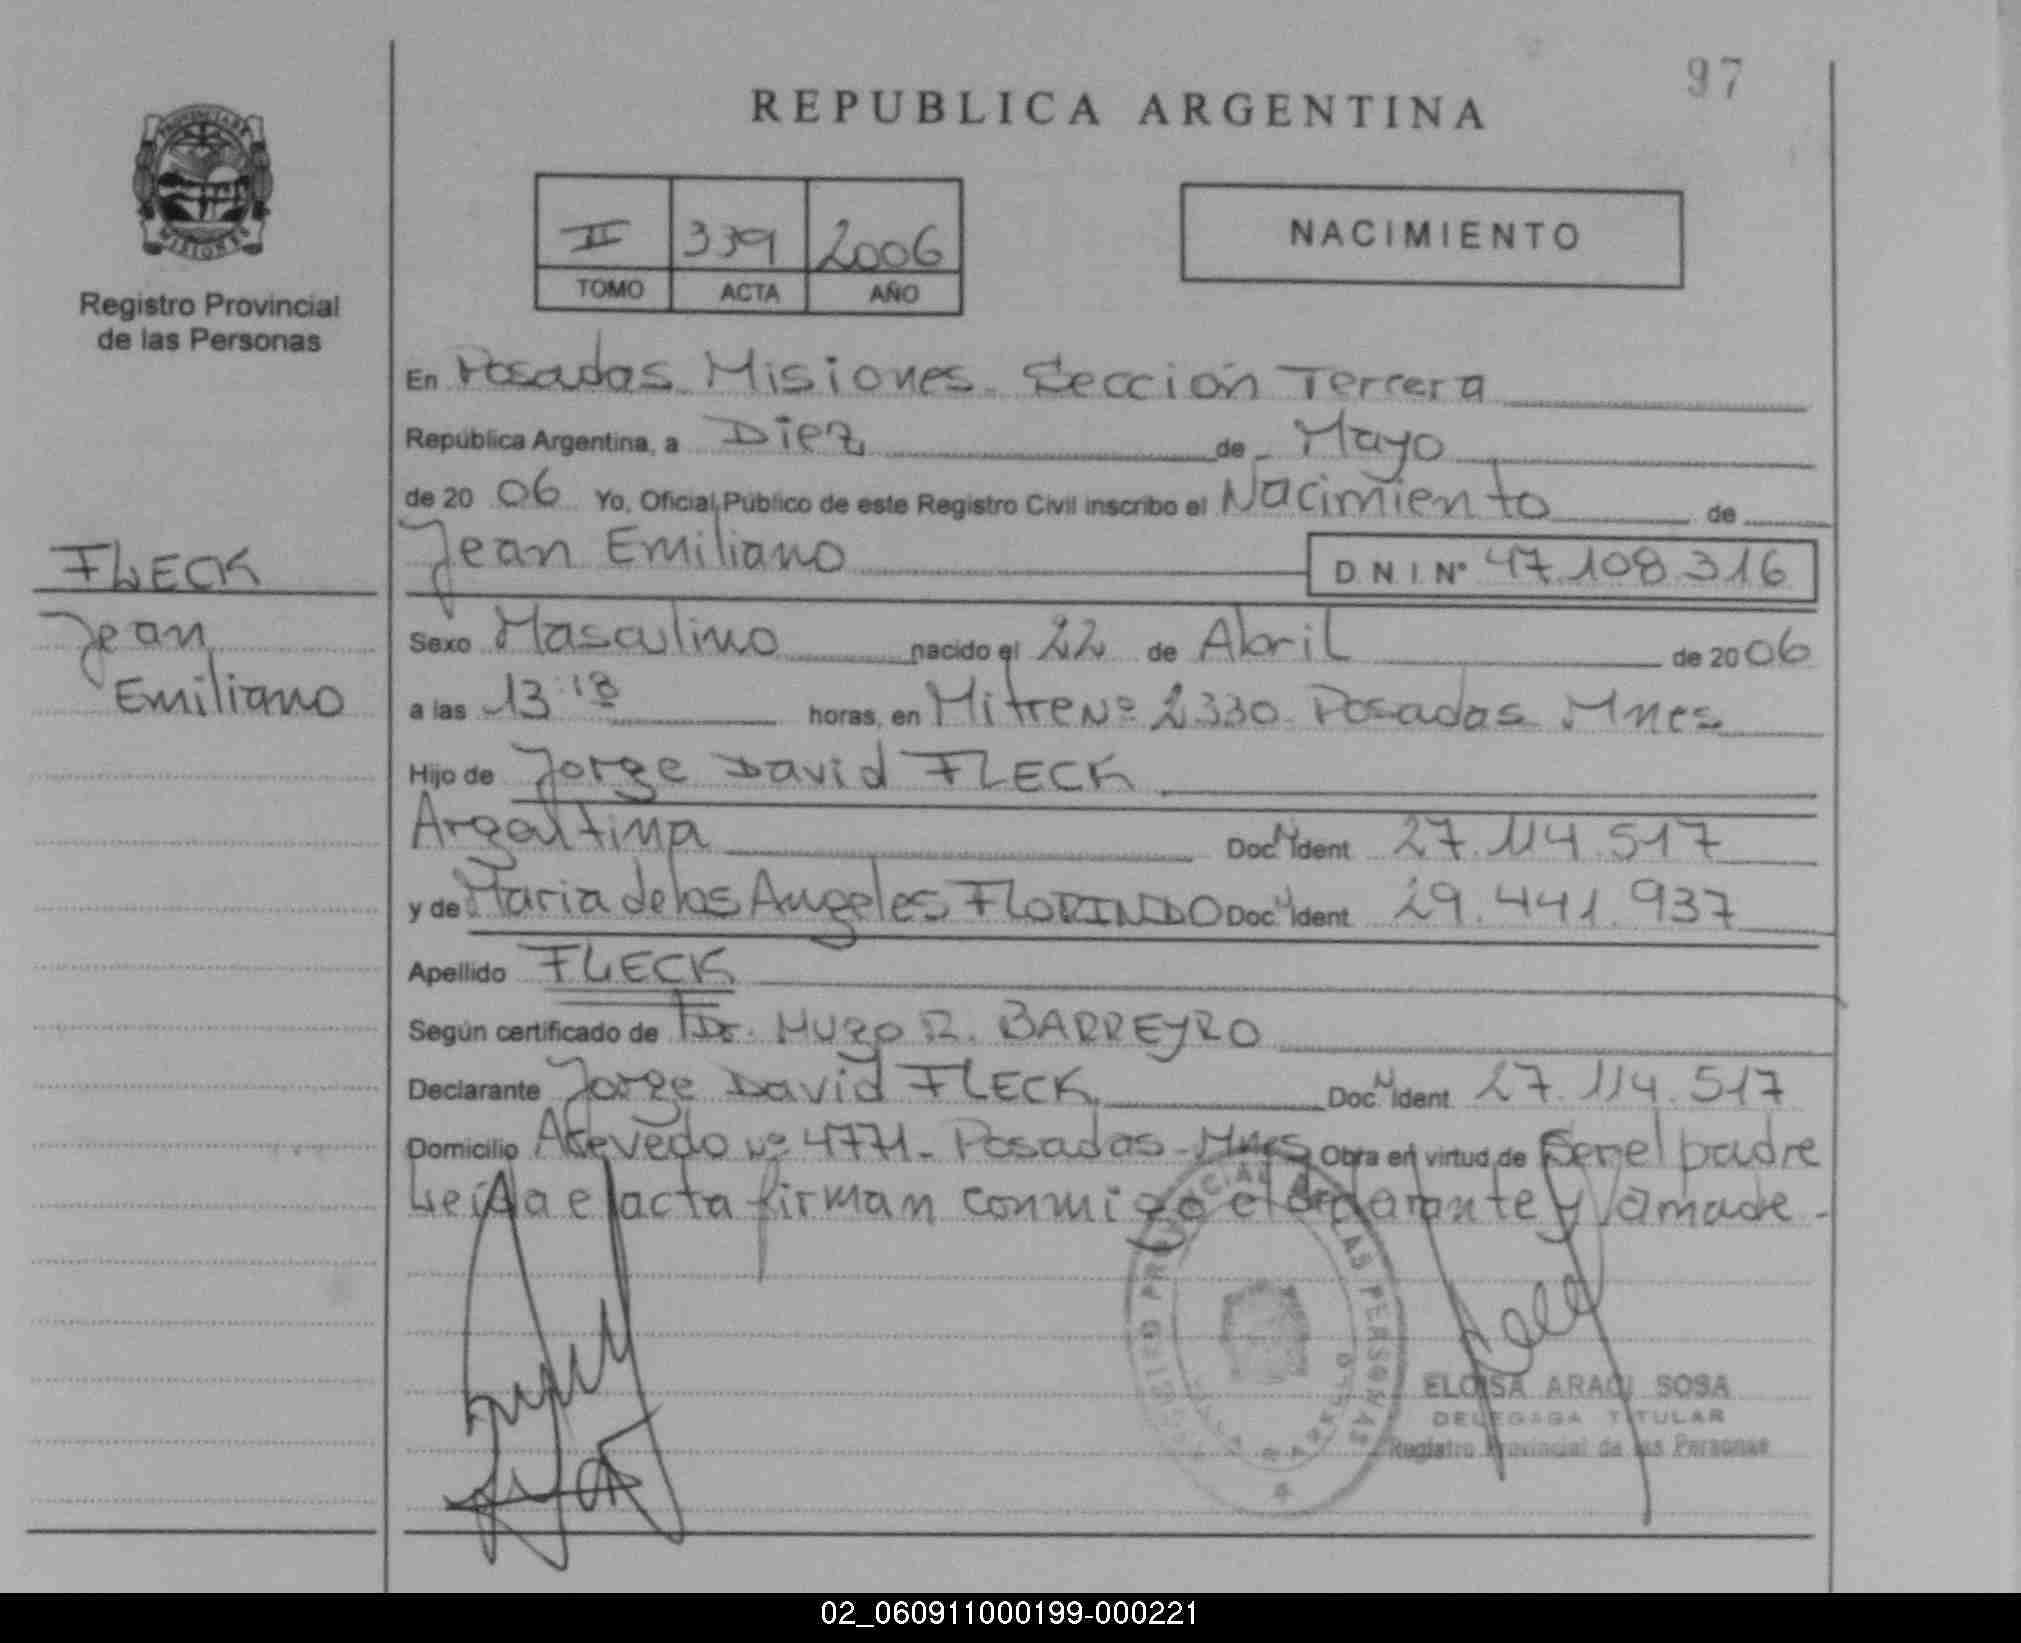 97
REPUBLICA ARGENTINA
PROVINCIA DE
MISIONES
Registro Provincial
de las Personas
II 339 2006
TOMO ACTA AÑO
NACIMIENTO
En Posadas Misiones - Sección Tercera
República Argentina, a Diez de Mayo
de 20 06 Yo, Oficial Público de este Registro Civil inscribo el Nacimiento de
FLECK
Jean
Emiliano
Jean Emiliano D N I Nº 47.108.316
Sexo Masculino nacido el 22 de Abril de 20 06
a las 13:18 horas, en Mitre Nº 2330 Posadas Mnes
Hijo de Jorge David FLECK
Argentina Doc. N Ident 27.114.517
y de Maria de los Angeles FLORINDO Doc. N Ident 29.441.937
Apellido FLECK
Según certificado de Dr. Hugo R. BARREYRO
Declarante Jorge David FLECK Doc. N Ident 27.114.517
Domicilio Acevedo Nº 4771 - Posadas - Mnes Obra en virtud de Ser el padre
Leída el acta firman conmigo el declarante y la madre -
REGISTRO PROVINCIAL DE LAS PERSONAS
ELOISA ARACI SOSA
DELEGADA TITULAR
Registro Provincial de las Personas
02_060911000199-000221